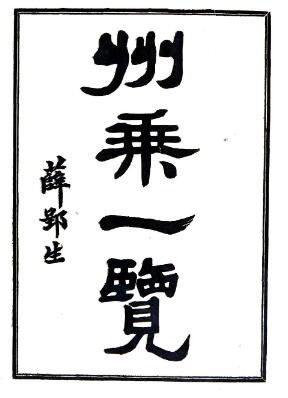 州乗一覽
薛郢生